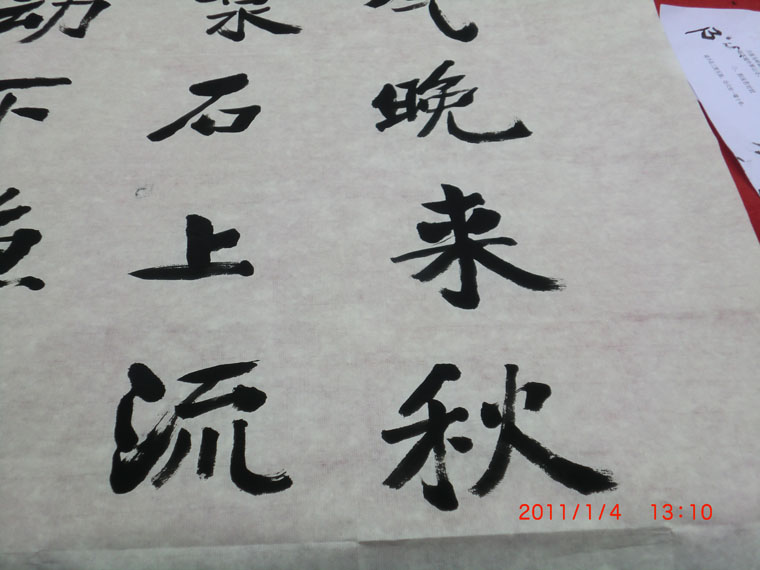 气晚来秋
泉石上流
动下
2011/1/4 13:10